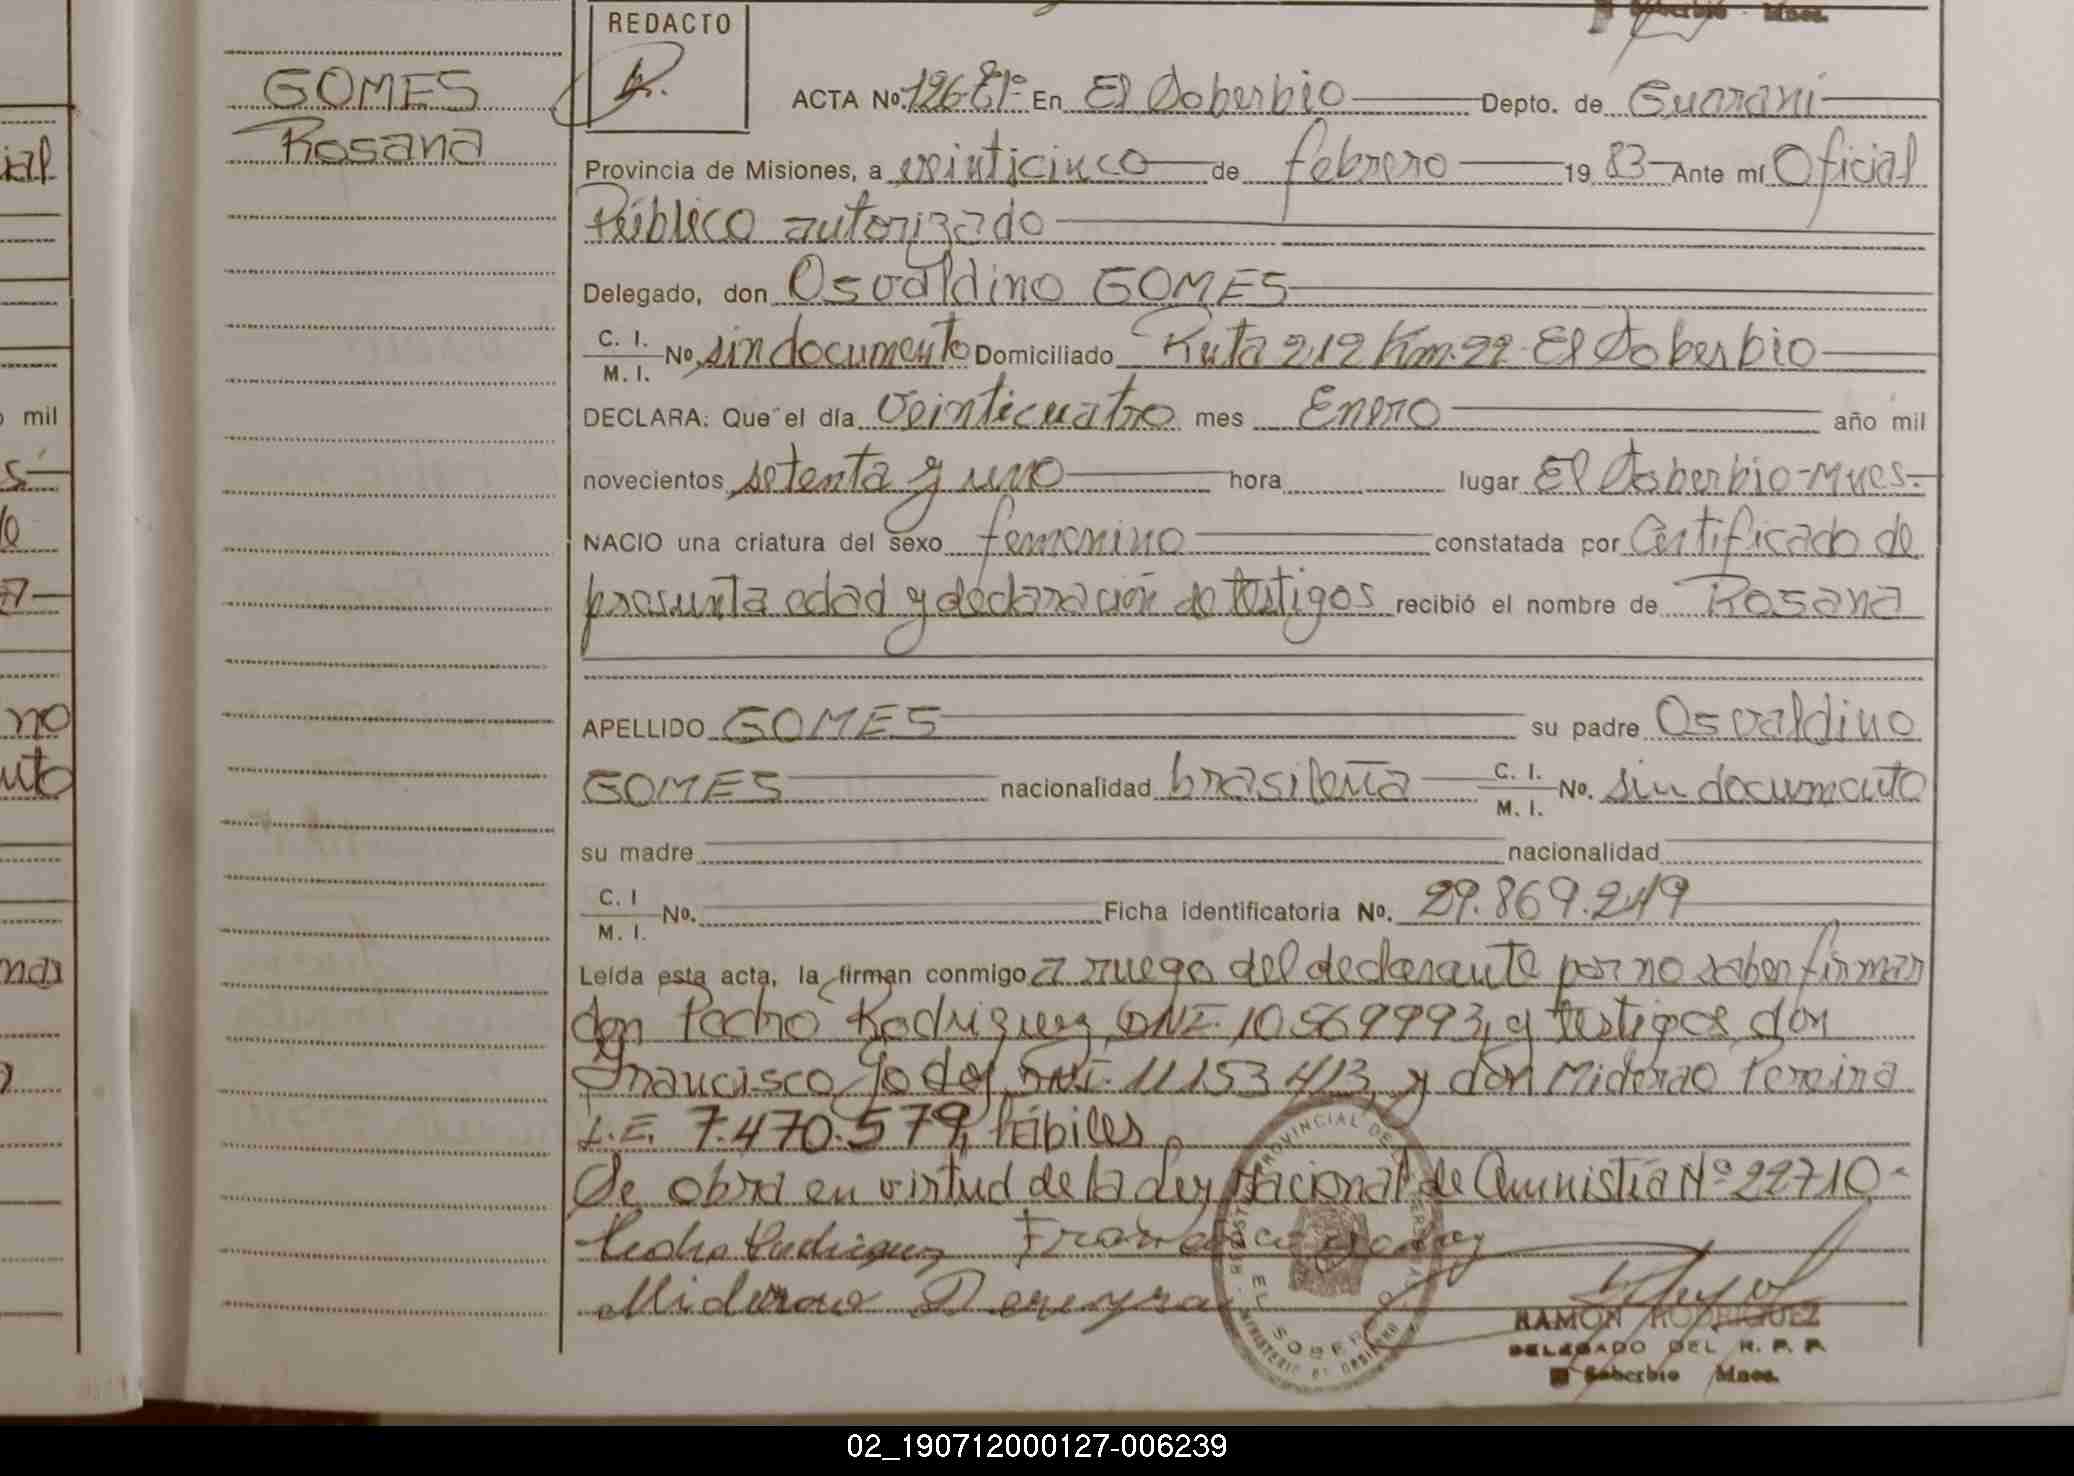 REDACTO
GOMES
Rosana
ACTA No. 196-E1º En El Soberbio Depto. de Guaraní
Provincia de Misiones, a veinticinco de febrero 19 83 Ante mí Oficial
Público autorizado
Delegado, don Osvaldino GOMES
C. I.
M. I. No. sin documento Domiciliado Ruta 212 Km. 22 El Soberbio
DECLARA: Que el día Veinticuatro mes Enero año mil
novecientos setenta y uno hora lugar El Soberbio-Mnes.-
NACIO una criatura del sexo femenino constatada por Certificado de
presunta edad y declaración de testigos recibió el nombre de Rosana
APELLIDO GOMES su padre Osvaldino
GOMES nacionalidad brasileña C. I. M. I. No. sin documento
su madre nacionalidad
C. I M. I. No. Ficha identificatoria No. 29.869.249
Leída esta acta, la firman conmigo a ruego del declarante por no saber firmar
don Pedro Rodriguez DNI. 10.569993, y testigos don
Francisco Godoy DNI. 11153413, y don Miderao Pereira
L.E. 7.470.579, hábiles.
Se obra en virtud de la Ley Nacional de Amnistía Nº 22710-
Pedro Rodriguez Francisco Godoy
Miderao Pereyra
RAMON RODRIGUEZ
DELEGADO DEL R. P. P.
El Soberbio Mnes.
02_190712000127-006239